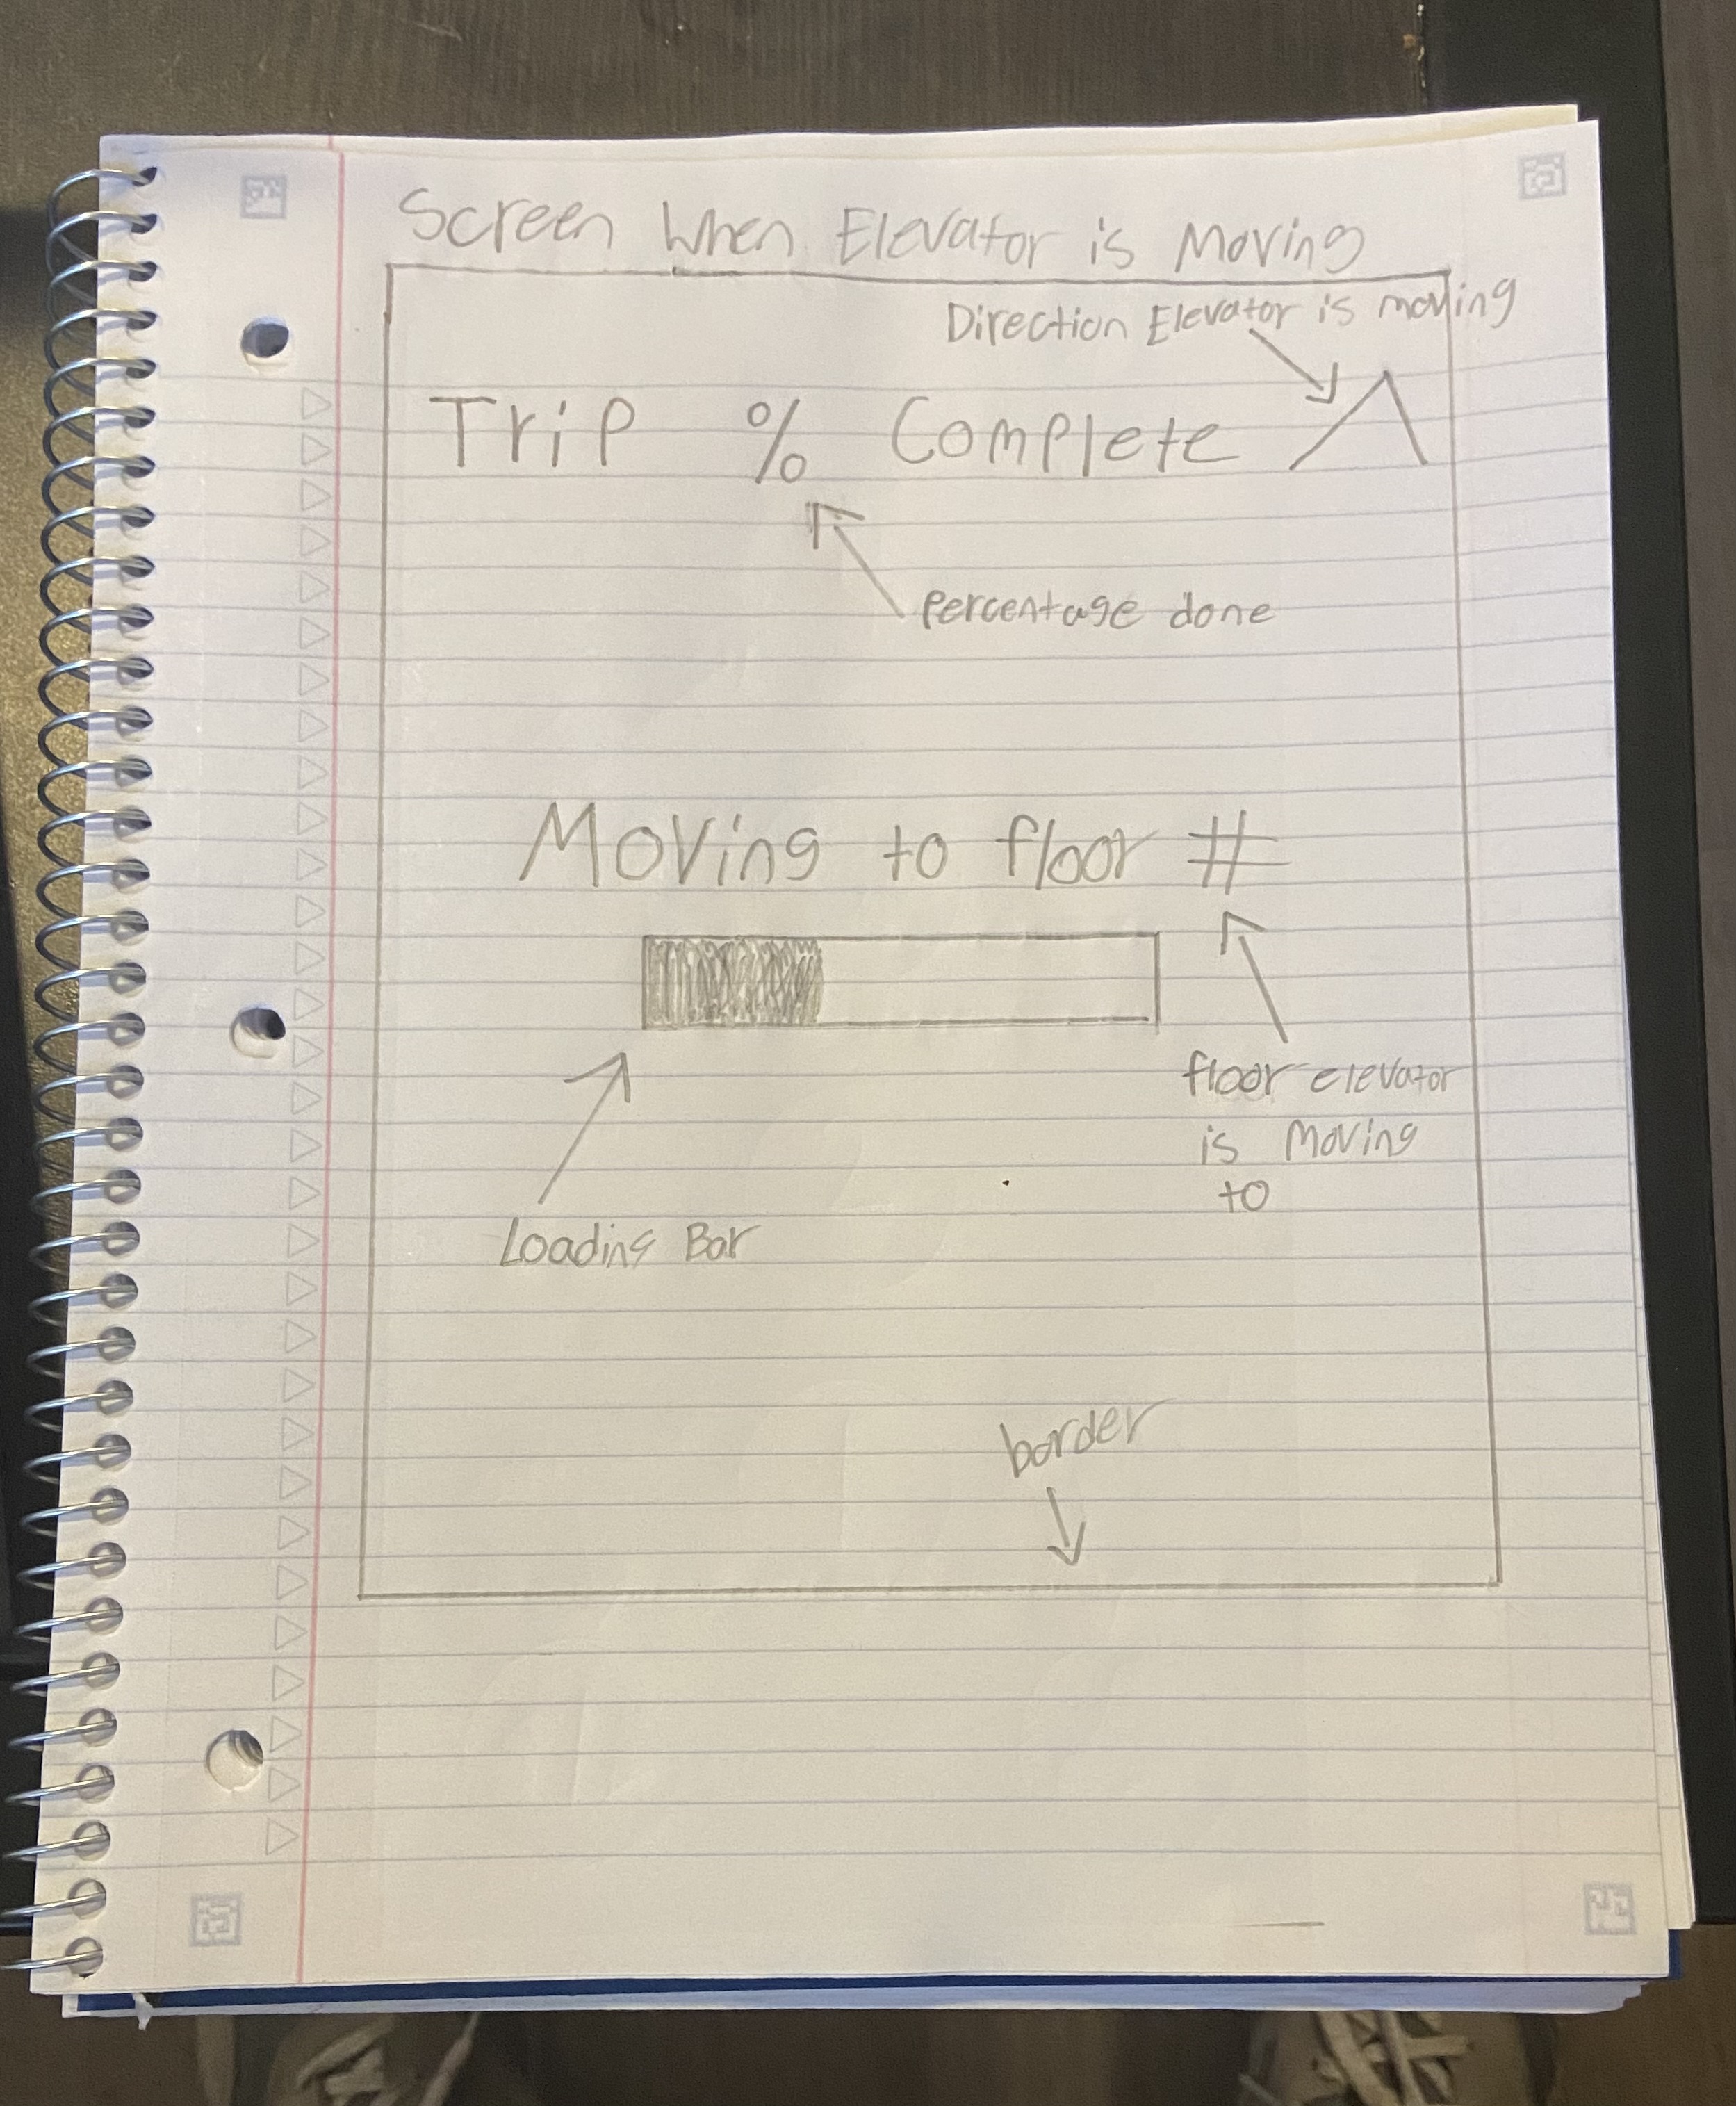 Screen When Elevator is Moving
Direction Elevator is moving
Trip % Complete
percentage done
Moving to floor #
floor elevator
is Moving
to
Loading Bar
border